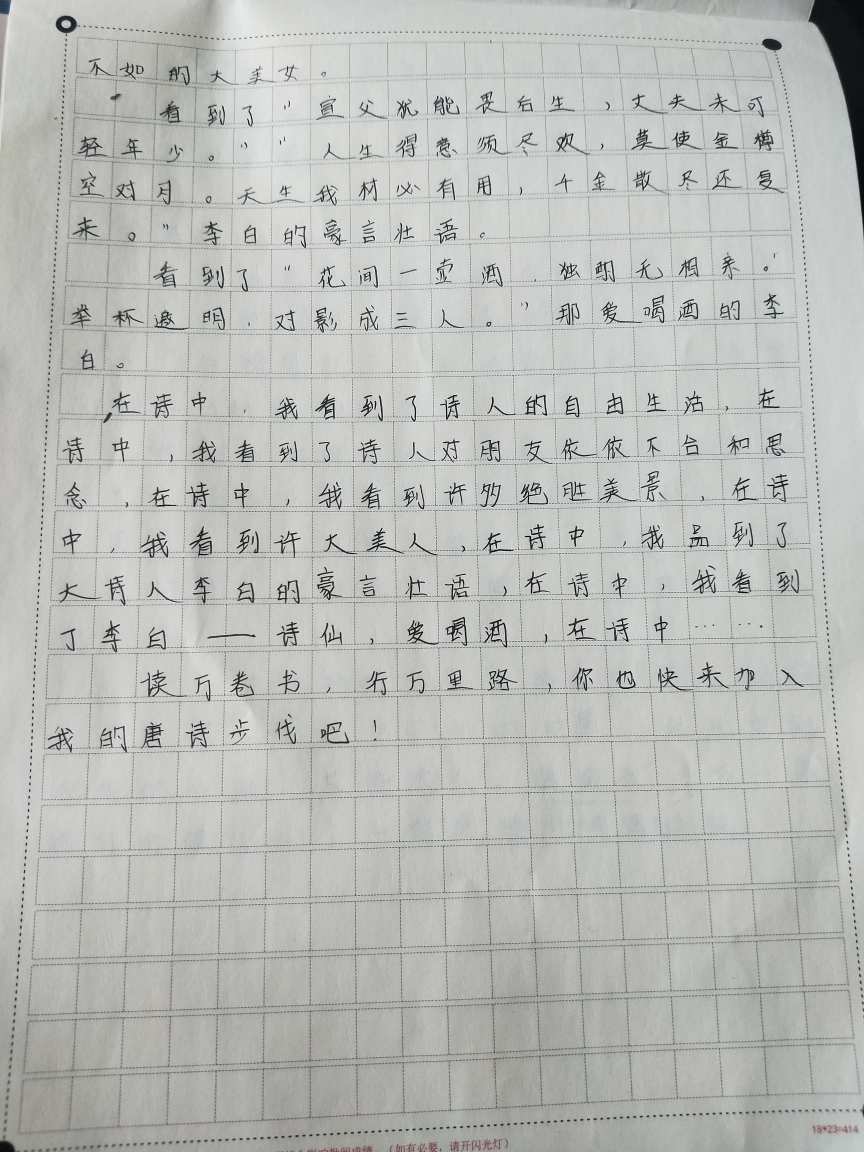 不如的大美女。
看到了“宣父犹能畏后生，丈夫未可
轻年少。”“人生得意须尽欢，莫使金樽
空对月。天生我材必有用，千金散尽还复
来。”李白的豪言壮语。
看到了“花间一壶酒，独酌无相亲。
举杯邀明，对影成三人。”那爱喝酒的李
白。
在诗中，我看到了诗人的自由生活，在
诗中，我看到了诗人对朋友依依不舍和思
念，在诗中，我看到许多绝胜美景，在诗
中，我看到许大美人，在诗中，我品到了
大诗人李白的豪言壮语，在诗中，我看到
了李白——诗仙，爱喝酒，在诗中……
读万卷书，行万里路，你也快来加入
我的唐诗步伐吧！
18*23=414
（如有必要，请开闪光灯）